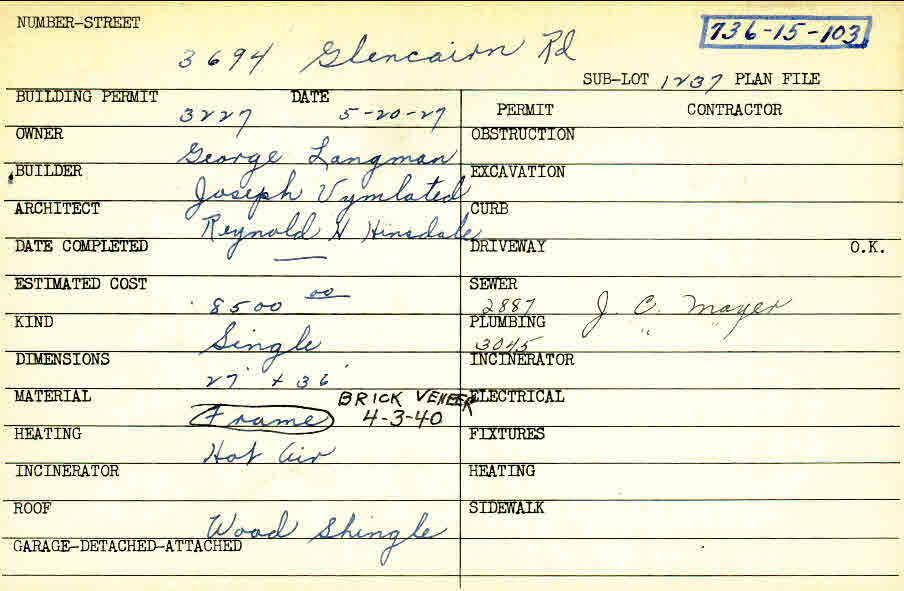 NUMBER-STREET
736-15-103
3694 Glencairn Rd
SUB-LOT 1237 PLAN FILE
BUILDING PERMIT 3227 DATE 5-20-27
PERMIT CONTRACTOR
OWNER George Langman
OBSTRUCTION
BUILDER Joseph Vymlated
EXCAVATION
ARCHITECT Reynold H Hinsdale
CURB
DATE COMPLETED —
DRIVEWAY O.K.
ESTIMATED COST 8500 00
SEWER 2887 J. C. Mayer
KIND Single
PLUMBING 3045 " "
DIMENSIONS 27' + 36'
INCINERATOR
MATERIAL Frame BRICK VENEER 4-3-40
ELECTRICAL
HEATING Hot Air
FIXTURES
INCINERATOR
HEATING
ROOF Wood Shingle
SIDEWALK
GARAGE-DETACHED-ATTACHED